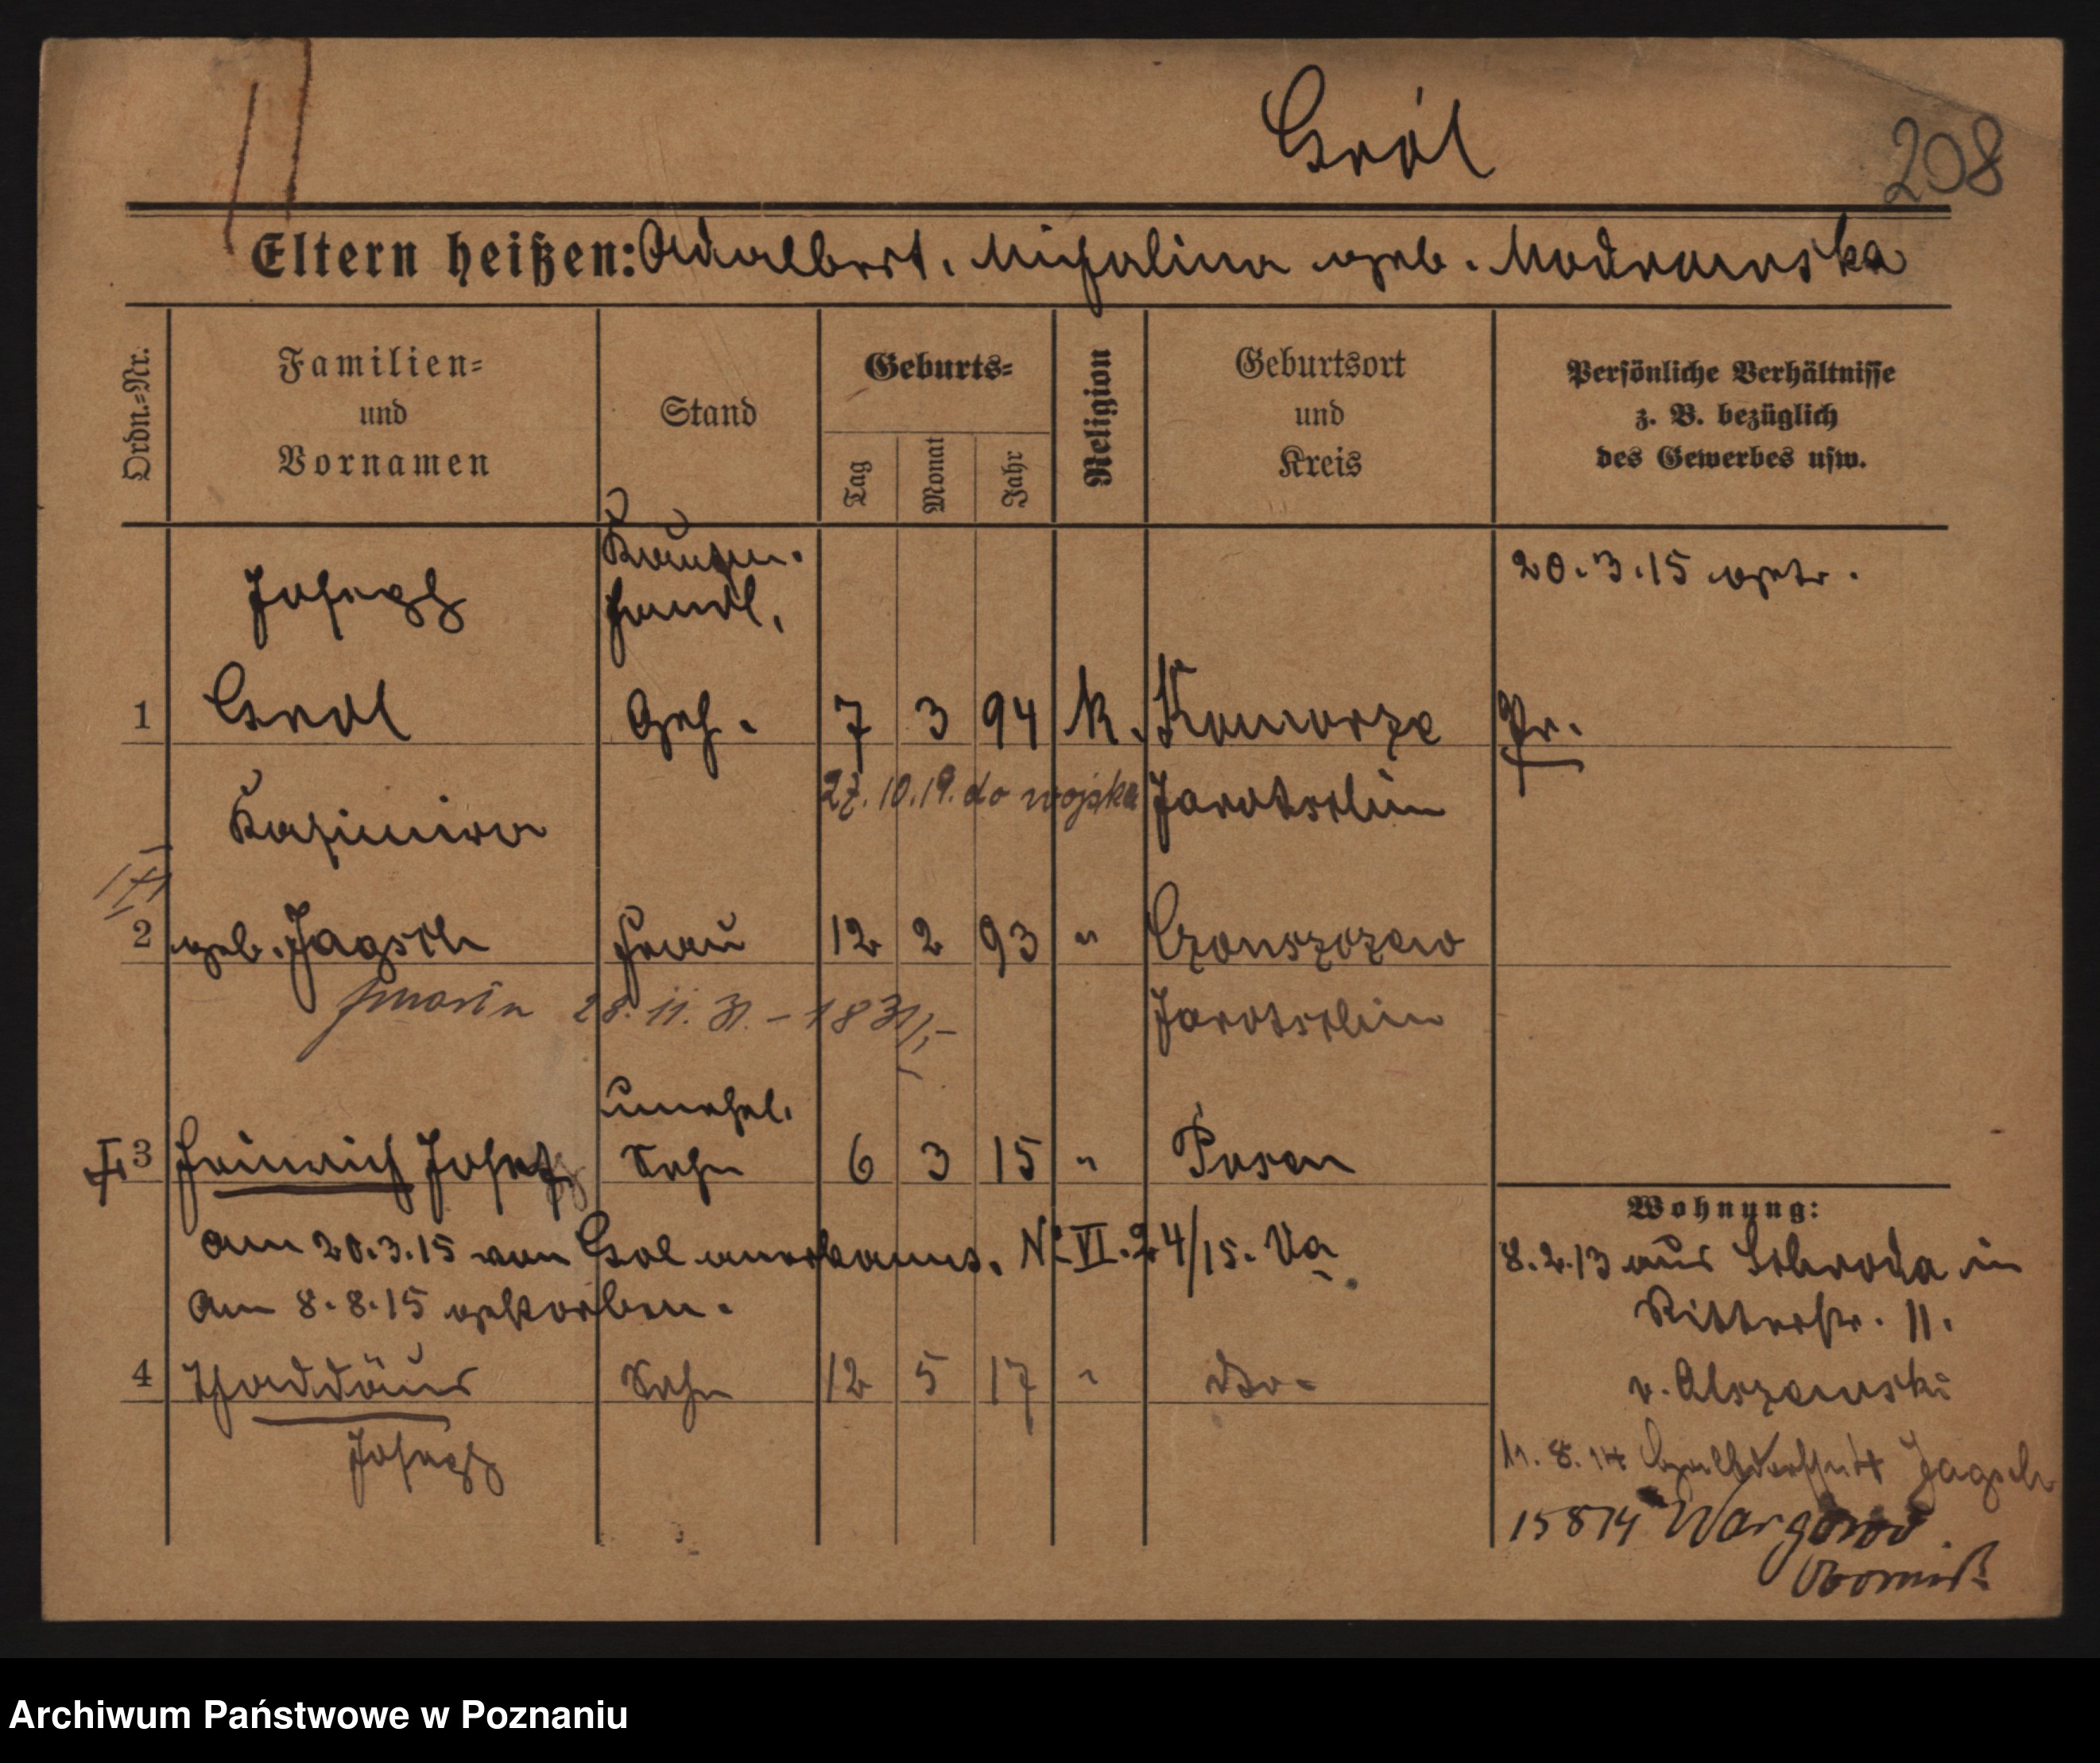 Gról
208
Eltern heißen: Adalbert, Michalina geb. Modrowska
Ordn.-Nr.
Familien-
und
Vornamen
Stand
Geburts-
Tag
Monat
Jahr
Religion
Geburtsort
und
Kreis
Persönliche Verhältnisse
z. B. bezüglich
des Gewerbes usw.
20.3.15 getr.
Joseph
handl.
1 Grol Geh. 7 3 94 K. Komorze Pr.
27.10.19. do wojska Jarotschin
Kazimira
2 geb. Jagsch Frau 12 2 93 " Czonszczewo
28.11.31. – 1831
Jarotschin
unehel.
3 Heinrich Josef Sohn 6 3 15 " Posen
am 20.3.15 von Gol anerkannt. No VI. 24/15. Va
am 8.8.15 gestorben.
4 Thaddäus Sohn 12 5 17 " do-
Joseph
Wohnung:
8.2.13 aus Schroda in
Ritterstr. 11.
v. Olszewski
11.8.14 Jagsch
15814 Wargowo
Obornik
Archiwum Państwowe w Poznaniu